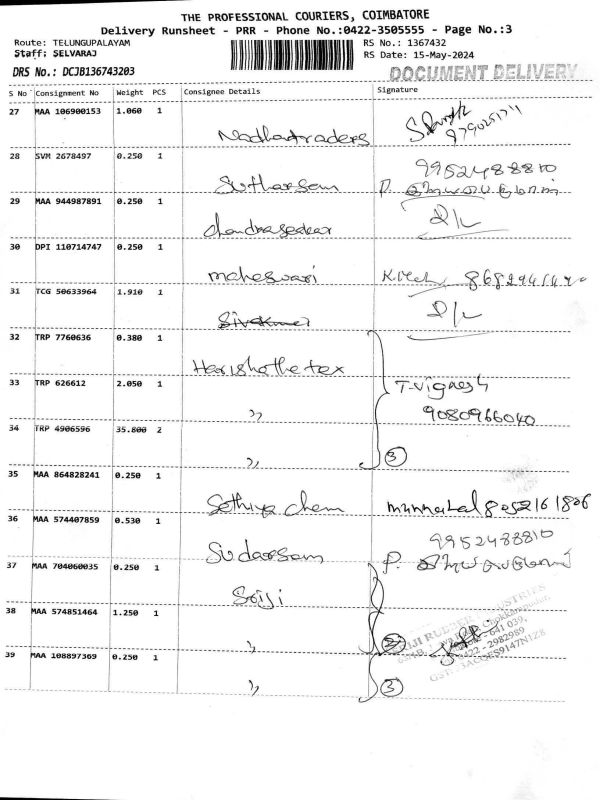 THE PROFESSIONAL COURIERS, COIMBATORE
Delivery Runsheet - PRR - Phone No.:0422-3505555 - Page No.:3
Route: TELUNGUPALAYAM RS No.: 1367432
Staff: SELVARAJ RS Date: 15-May-2024
DRS No.: DCJB136743203 DOCUMENT DELIVERY
S No Consignment No Weight PCS Consignee Details Signature
27 MAA 106900153 1.060 1
Nadhartraders
28 SVM 2678497 0.250 1 9952488810
Sutharsam P.
29 MAA 944987891 0.250 1 D/L
Chandrasekar
30 DPI 110714747 0.250 1
maheswari
31 TCG 50633964 1.910 1 D/L
32 TRP 7760636 0.380 1
Harishothetex
33 TRP 626612 2.050 1 T-vignesh
" 9080966040
34 TRP 4906596 35.800 2
" 3
35 MAA 864828241 0.250 1
Sathiya Chem 8052161806
36 MAA 574407859 0.530 1 9952488810
Sudarsam P.
37 MAA 704060035 0.250 1
Sriji
38 MAA 574851464 1.250 1
"
39 MAA 108897369 0.250 1
" 3